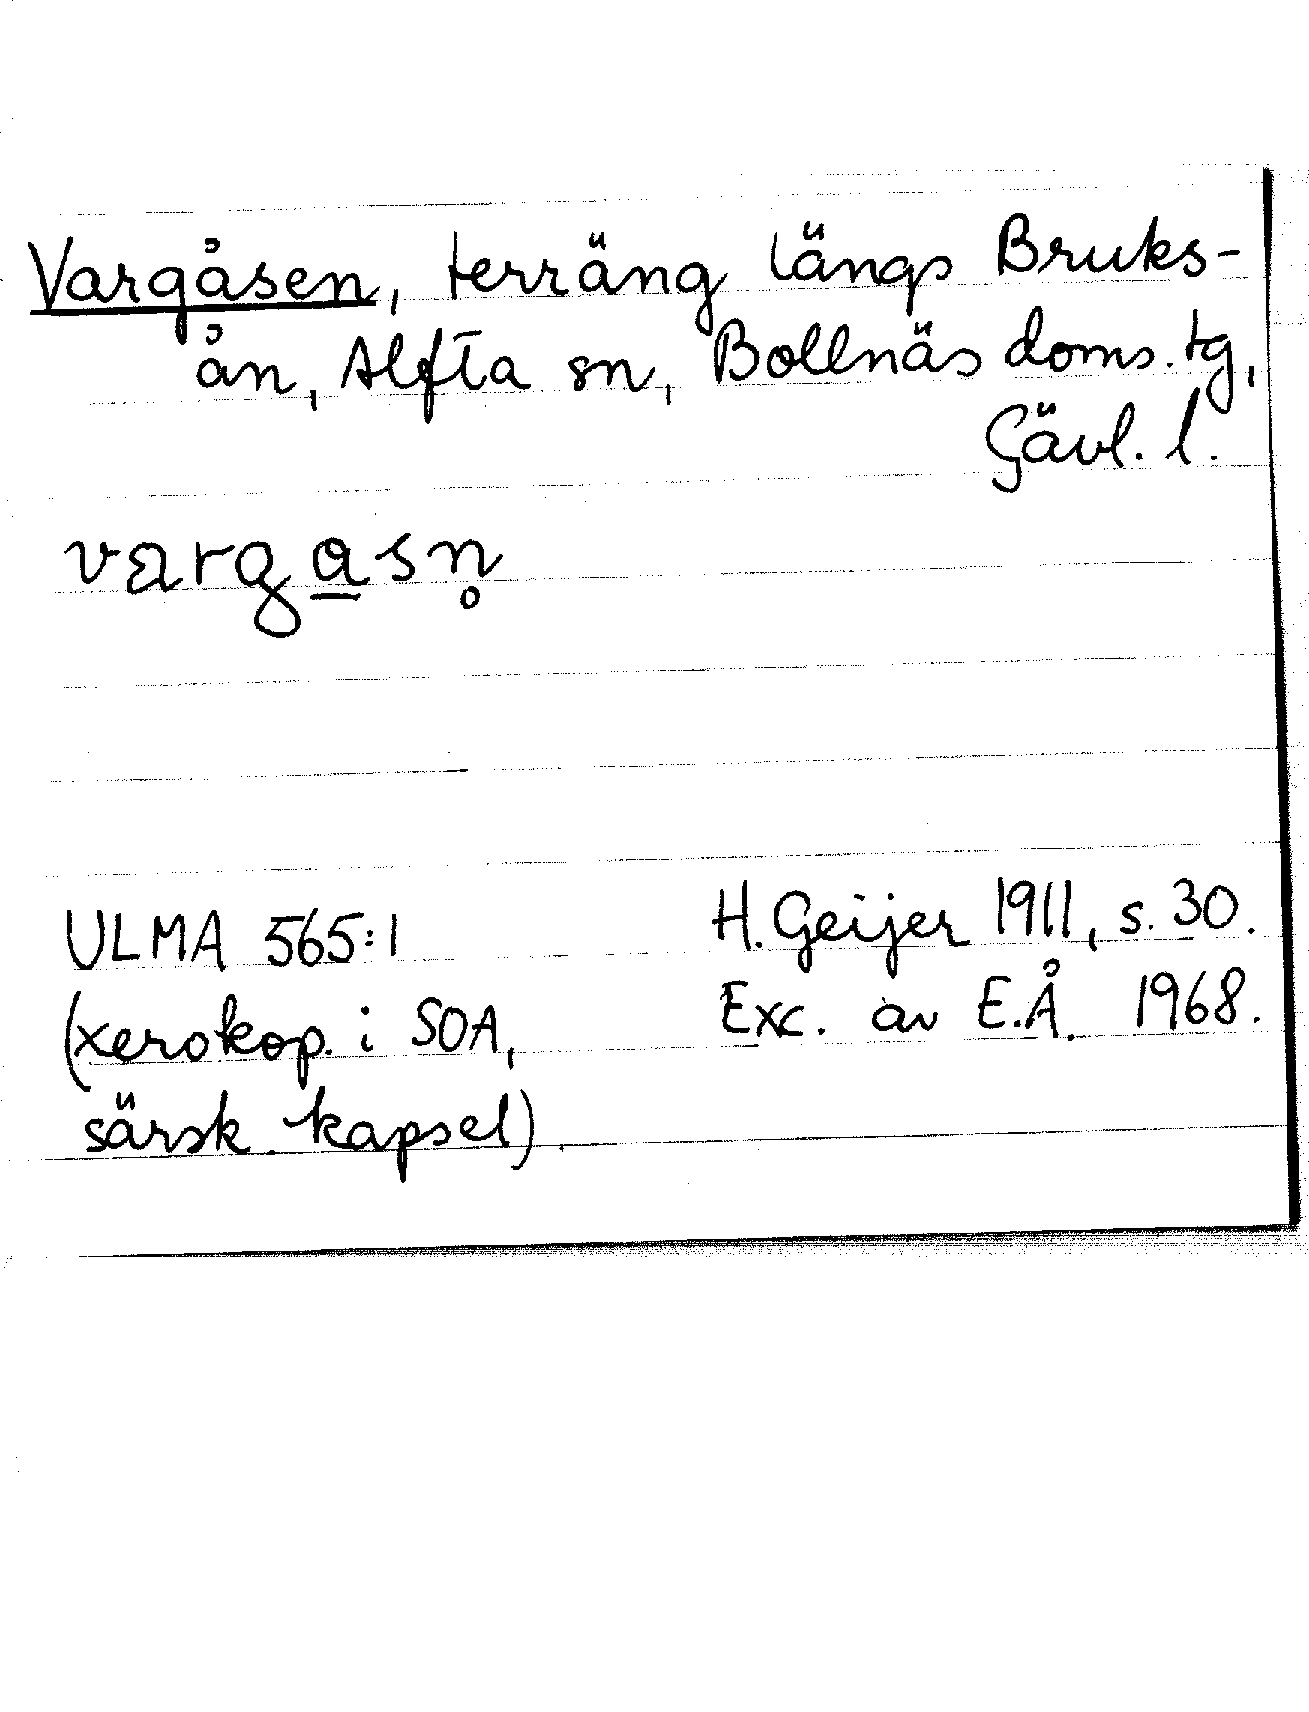 Vargåsen, terräng längs Bruks-
ån, Alfta sn, Bollnäs doms. tg,
Gävl. l.
varga̲sn̥
ULMA 565:1
(xerokop. i SOA,
särsk. kapsel).
H. Geijer 1911, s. 30.
Exc. av E.Å. 1968.